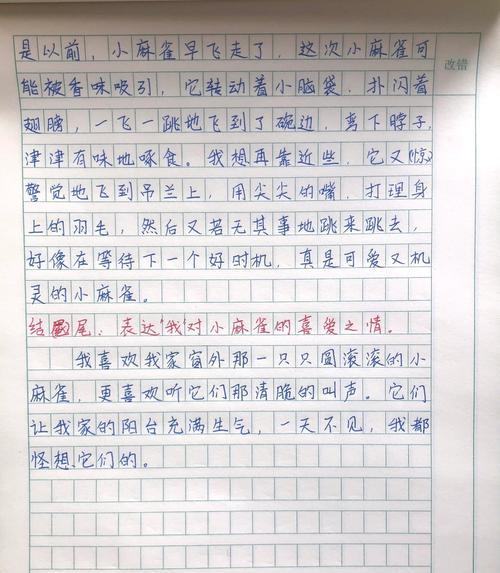 改错
是以前，小麻雀早飞走了．这次小麻雀可
能被香味吸引，它转动着小脑袋．扑闪着
翅膀，一飞一跳地飞到了碗边，弯下脖子，
津津有味地啄食。我想再靠近些，它又(惊)
警觉地飞到吊兰上，用尖尖的嘴，打理身
上的羽毛，然后又若无其事地跳来跳去，
好像在等待下一个好时机，真是可爱又机
灵的小麻雀。
结尾：表达"我"对小麻雀的喜爱之情。
我喜欢我家窗外那一只只圆滚滚的小
麻雀，更喜欢听它们那清脆的叫声。它们
让我家的阳台充满生气，一天不见，我都
怪想它们的。